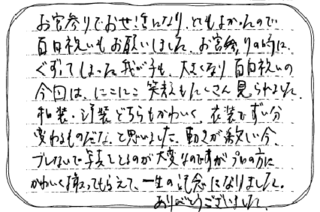 お宮参りでお世話になり、とてもよかったので
百日祝いもお願いしました。お宮参りの時は、
ぐずってしまった我が子も、大きくなり百日祝いの
今回は、にこにこ笑顔もたくさん見られました。
和装・洋装どちらもかわいく、衣装でずい分
変わるものだな、と思いました。動きが激しい今、
ブレないで写真をとるのが大変なのですがプロの方に
かわいく撮ってもらえて、一生の記念になりました。
ありがとうございました。